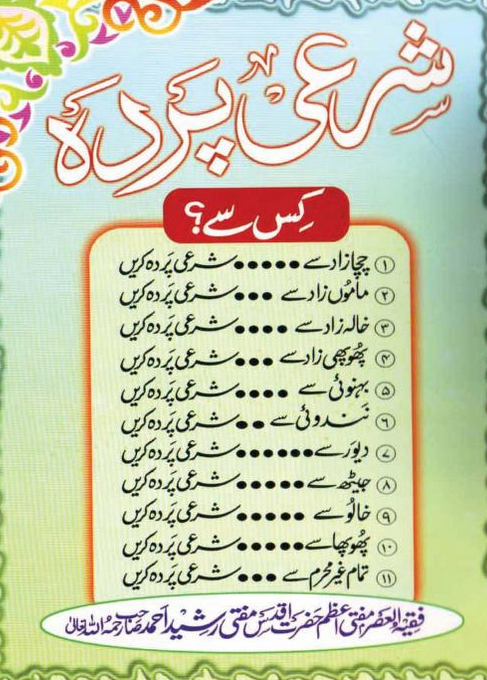 شرعی پردہ
کِس سے؟
① چچا زاد سے ●●●●● شرعی پَردہ کریں
② ماموں زاد سے ●●● شرعی پَردہ کریں
③ خالہ زاد سے ●●●● شرعی پَردہ کریں
④ پھوپھی زاد سے ●●● شرعی پَردہ کریں
⑤ بہنوئی سے ●●●● شرعی پَردہ کریں
⑥ نندوئی سے ●● شرعی پَردہ کریں
⑦ دیوَر سے ●●●●●● شرعی پَردہ کریں
⑧ جیٹھ سے ●●●●● شرعی پَردہ کریں
⑨ خالُو سے ●●●●● شرعی پَردہ کریں
⑩ پھُوپھا سے ●●●●● شرعی پَردہ کریں
⑪ تمام غیر محرم سے ●●● شرعی پَردہ کریں
فقیہ العصر مفتی اعظم حضرت اقدس مفتی رشید احمد صاحب رحمہ اللہ تعالیٰ